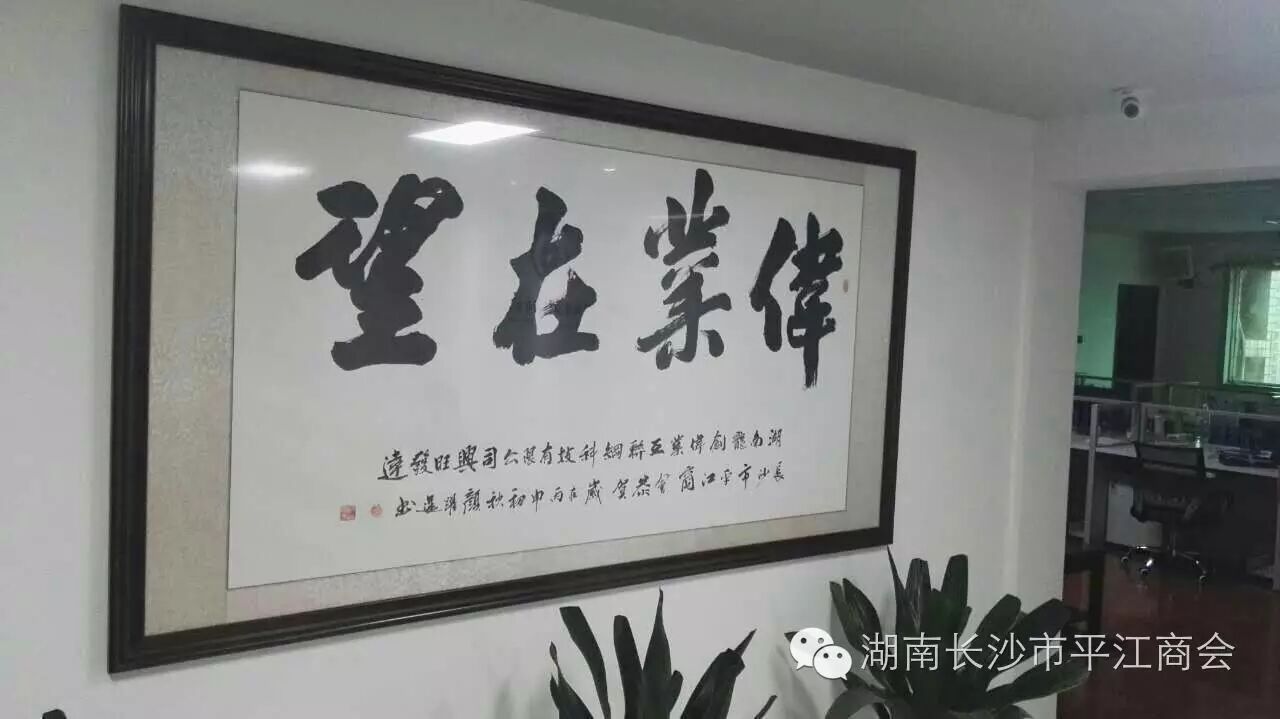 偉業在望
湖南龍創偉業互聯網科技有限公司興旺發達
長沙市平江商會恭賀 歲在丙申初秋顏
书
湖南长沙市平江商会